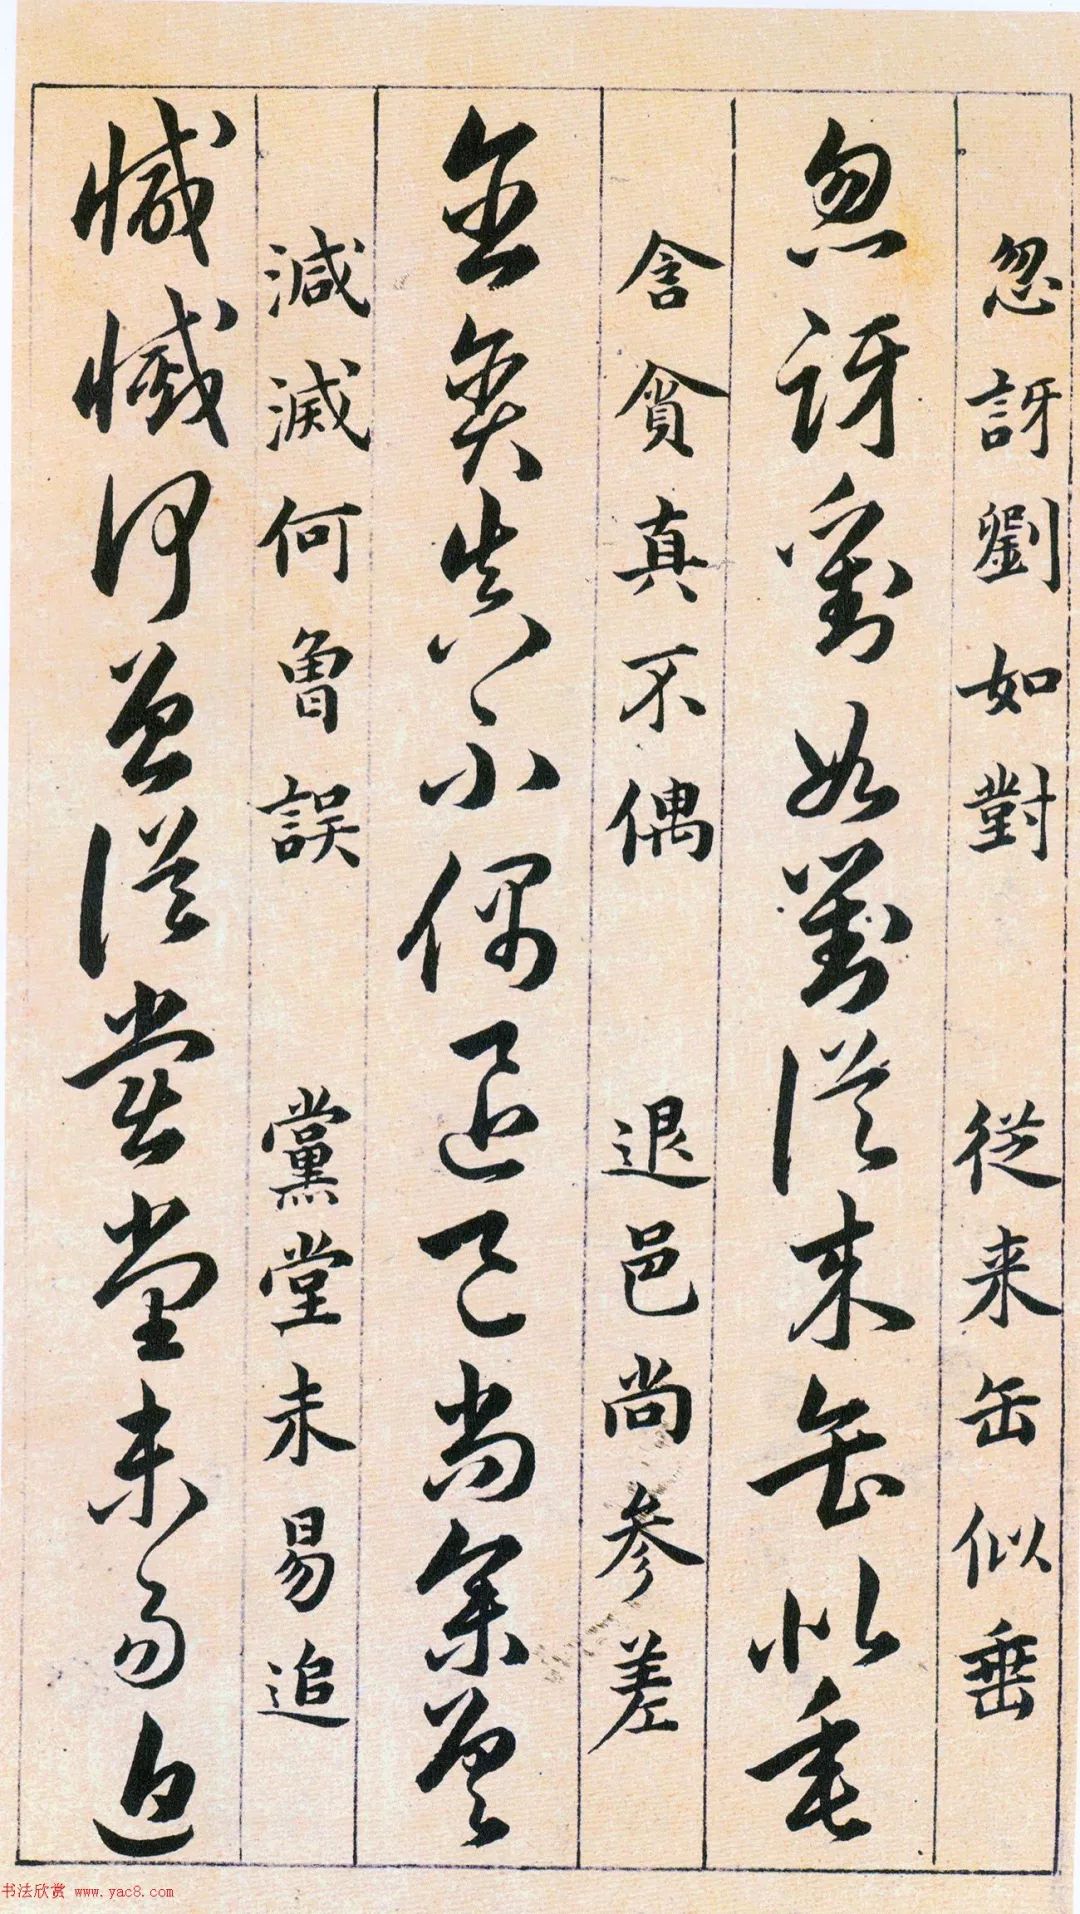 忽訝劉如對 從来缶似垂
忽訝劉如對從来缶似垂
含貪真不偶 退邑尚参差
含貪真不偶退邑尚参差
減滅何曾誤 黨堂未易追
減滅何曾誤黨堂未易追
书法欣赏 www.yac8.com